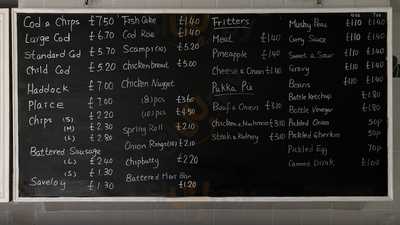 Cod & Chips £7.50
Large Cod £6.70
Standard Cod £5.70
Child Cod £5.20
Haddock £7.00
Plaice £7.00
Chips (S) £2.20
(M) £2.30
(L) £2.80
Battered Sausage
(L) £2.40
(S) £1.30
Saveloy £1.30
Fish Cake £1.40
Cod Roe £1.40
Scampi (10) £5.20
Chicken Breast £3.00
Chicken Nugget
(8) pcs £3.60
(10) pcs £4.50
Spring Roll £2.10
Onion Rings (10) £2.10
Chip butty £2.20
Battered Mars Bar
£1.20
Fritters
Meat £1.40
Pineapple £1.40
Cheese & Onion £1.40
Pukka Pie
Beef & Onion £3.10
Chicken & Mushroom £3.10
Steak & Kidney £3.10
Mushy Peas £1.10 £1.40
Curry Sauce £1.10 £1.40
Sweet & Sour £1.10 £1.40
Gravy £1.10 £1.40
Beans £1.10 £1.40
Bottle Ketchup £1.80
Bottle Vinegar £1.80
Pickled Onion 50p
Pickled Gherkin 50p
Pickled Egg 70p
Canned Drink £1.00